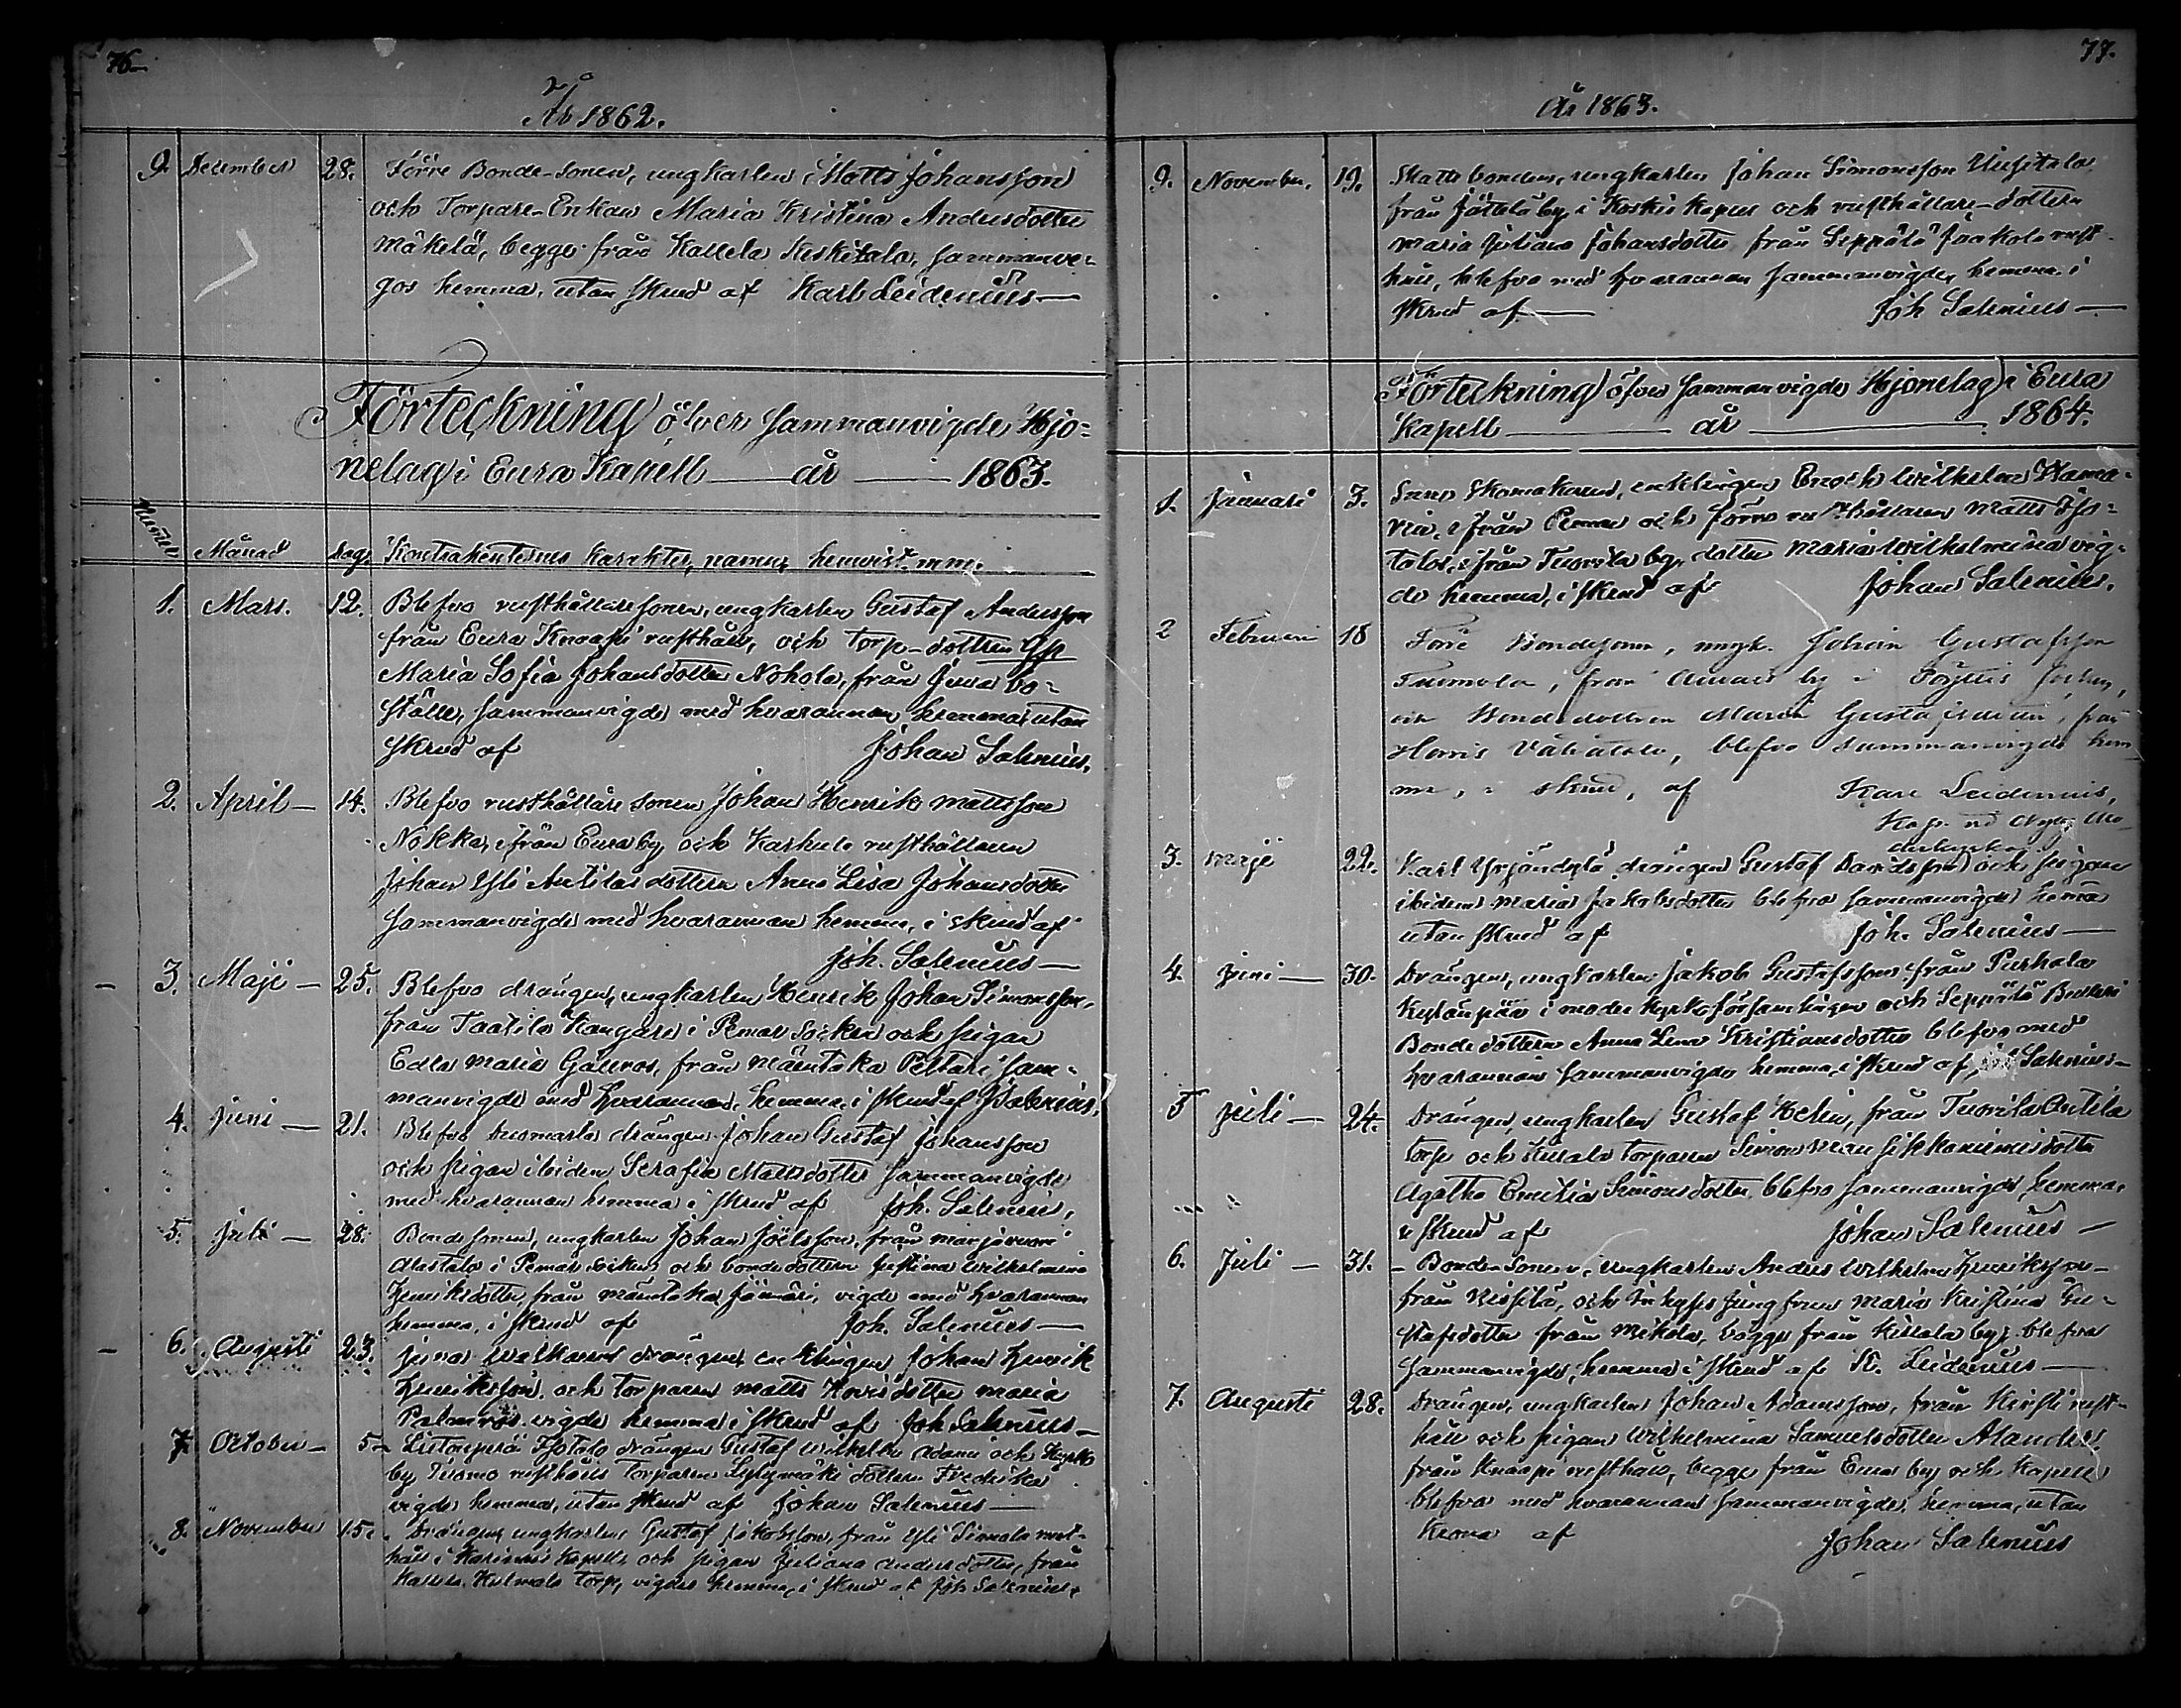 76.
År 1862.
9. December 28. Förre Bonde-Sonen, ungkarlen Matts Johansson
och Torpare-Enkan Maria Kristina Andersdotter
Mäkelä, begge från Kallela Keskitalo, sammanvi-
gos hemma, utan skrud af Karl Leidenius
Förteckning öfver sammanvigde Hjo-
nelag i Eura Kapell år 1863.
Månad Dag. Kontrahenternes karakter, namn, hemvist m.m.
1. Mars. 12. Blefvo rusthållaresonen, ungkarlen Gustaf Andersson
från Eura Knaapi rusthåll, och Torp-dottren
Maria Sofia Johansdotter Nohola, från Juva bo-
ställe, sammanvigde med hvarannan hemma, utan
skrud af Johan Salenius.
2. April 14. Blefvo rusthållare sonen Johan Henrik Mattsson
Nokka, ifrån Eura by och Karhula rusthållaren
Johan Yli Antilas dottern Anna Lisa Johansdotter
sammanvigde med hvarannan hemma, i skrud af
Joh. Salenius
3. Maji 25. Blefvo drängen, ungkarlen Henrik Johan Simonsson,
från Taatila Kangare i Pemar Socken och pigan
Edla Maria från Mäentaka Peltari sam-
manvigde med hvarannan, hemma, i skrud af J Salenius.
4. Juni 21. Blefvo drängen Johan Gustaf Johansson
och pigan ibidem Serafia Mattsdotter sammanvigde
med hvarannan hemma i skrud af Joh. Salenius,
5. Juli 28. Bondesonen, ungkarlen Johan Joelsson, från
Alastalo i Pemar Socken och bondedottern Justina Wilhelmina
Henriksdotter, från Mäentaka vigde med hvarannan
hemma, i skrud af Joh. Salenius
6. Augusti 23. Juva drängen, enklingen Johan Henrik
Henriksson, och torparen Matts dotter Maria
vigde hemma i skrud af Joh Salenius
7. October 5. Isotalo drängen Gustaf Wilhelm Adams och
by Tuomo rusthålls Torparen Lylymäki dottern Fredrika
vigde hemma, utan skrud af Johan Salenius
8. November 15. Drängen, ungkarlen Gustaf Jakobsson, från Yli rust-
håll i Karinais Kapell och pigan Juliana Andersdotter, från
Kallela torp, vigde hemma, i skrud af Joh Salenius
77.
År 1863.
9. November. 19. Skattebonden, ungkarlen Johan Simonsson Uusitalo,
från by i Koskis Kapell och rusthållare-dottern
Maria Juliana Johansdotter från Seppälä Jaakola rust-
håll, blefvo med hvarannan sammanvigde, hemma i
skrud af Joh Salenius
Förteckning öfver sammanvigde Hjonelag i Eura
Kapell år 1864.
1. Januari 3. Skomakaren, enklingen Enoch Wilhelm
ifrån Pemar och förre rusthållaren Matts Iso-
talos, ifrån Tuorila by, dotter Maria Wilhelmina vig-
de hemma, i skrud af Johan Salenius.
2 Februari 18 Förre Bondesonen, ungk. Johan Gustafsson
Tuomola, från by i Pöytis socken,
och Bondedottren Maria Gustafsdotter, från
Vähätalo, blefvo sammanvigde hem-
ma, i skrud, af Karl Leidenius,
3. Maji 22. Karl Yrjänälä drängen Gustaf Davidsson och pigan
ibidem Maria Jakobsdotter blefvo sammanvigde hemma
utan skrud af Joh. Salenius
4. Juni 30. Drängen, ungkarlen Jakob Gustafsson från Purhala
Kylänpää i moder kyrkoförsamlingen och Seppälä
Bonde dottern Anna Lena Kristiansdotter blefvo med
hvarannan sammanvigde hemma, i skrud af Salenius
5 Juli 24. Drängen, ungkarlen Gustaf Helin, från Tuorila Antila
torp och torparen Simon dotter
Agatha Emilia Simonsdotter blefvo sammanvigde hemma,
i skrud af Johan Salenius
6. Juli 31. Bonde-Sonen, ungkarlen Anders Wilhelm Henriksson
från och jungfrun Maria Kristina Gu-
stafsdotter från Mikola, begge från by, blefvo
sammanvigde, hemma i skrud af K. Leidenius
7. Augusti 28. Drängen, ungkarlen Johan Adamsson, från rust-
håll och pigan Wilhelmina Samuelsdotter
från Knaapi rusthåll, begge från Eura by och Kapell
blefvo med hvarannan sammanvigde, hemma, utan
krona af Johan Salenius